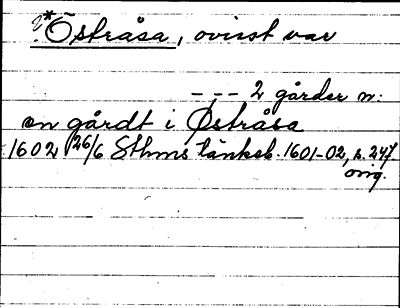 ?*Östråsa, ovisst var
-,- 2 gårder n:
en gårdt i Østråsa
1602 26/6 Sthms tänkeb. 1601-02, s. 247.
orig.